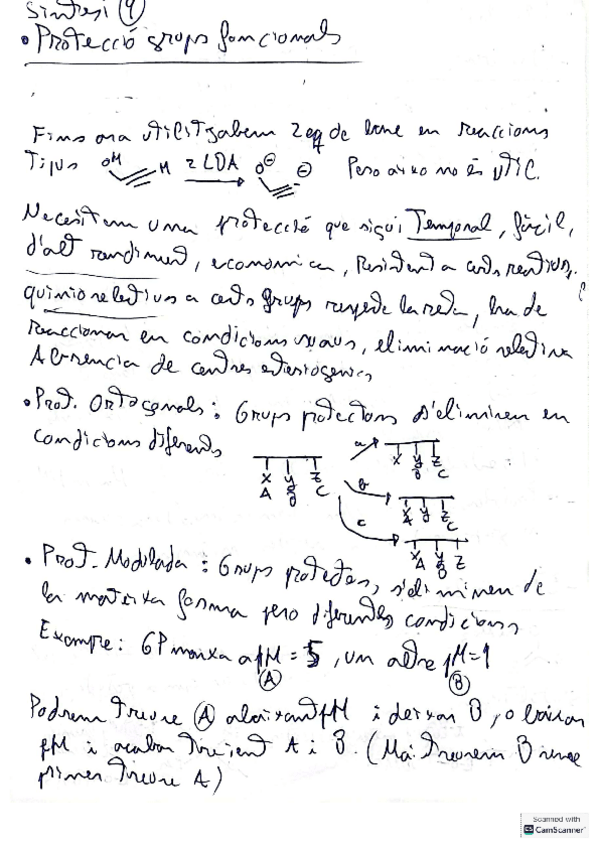 Síntesi 9
• Protecció grups funcionals
Fins ara utilitzabem 2 eq de base en reaccions
Tipus OH H 2 LDA O⊖ ⊖ Pero aixo no és útil.
Necesitem una protecció que sigui Temporal, fàcil,
d'alt rendiment, economica, Resistent a certs reactius,
quimioselectius a certs grups respecte la resta, ha de
reaccionar en condicions suaus, eliminació selectiva
Absència de centres estereogenics
• Prot. Ortogonals: Grups protectors s'eliminen en
condicions diferents
X Y Z
A B C
a X Y Z
B C
b X Y Z
A C
c X Y Z
A B
• Prot. Modulada: Grups protectors, s'eliminen de
la mateixa forma pero diferentes condicions
Exemple: GP marxa a pH = 5, un altre pH = 1
A B
Podrem treure A abaixant pH i deixar B, o baixar
pH i acabar traient A i B. (Mai treurem B sense
primer treure A)
Scanned with
CS CamScanner